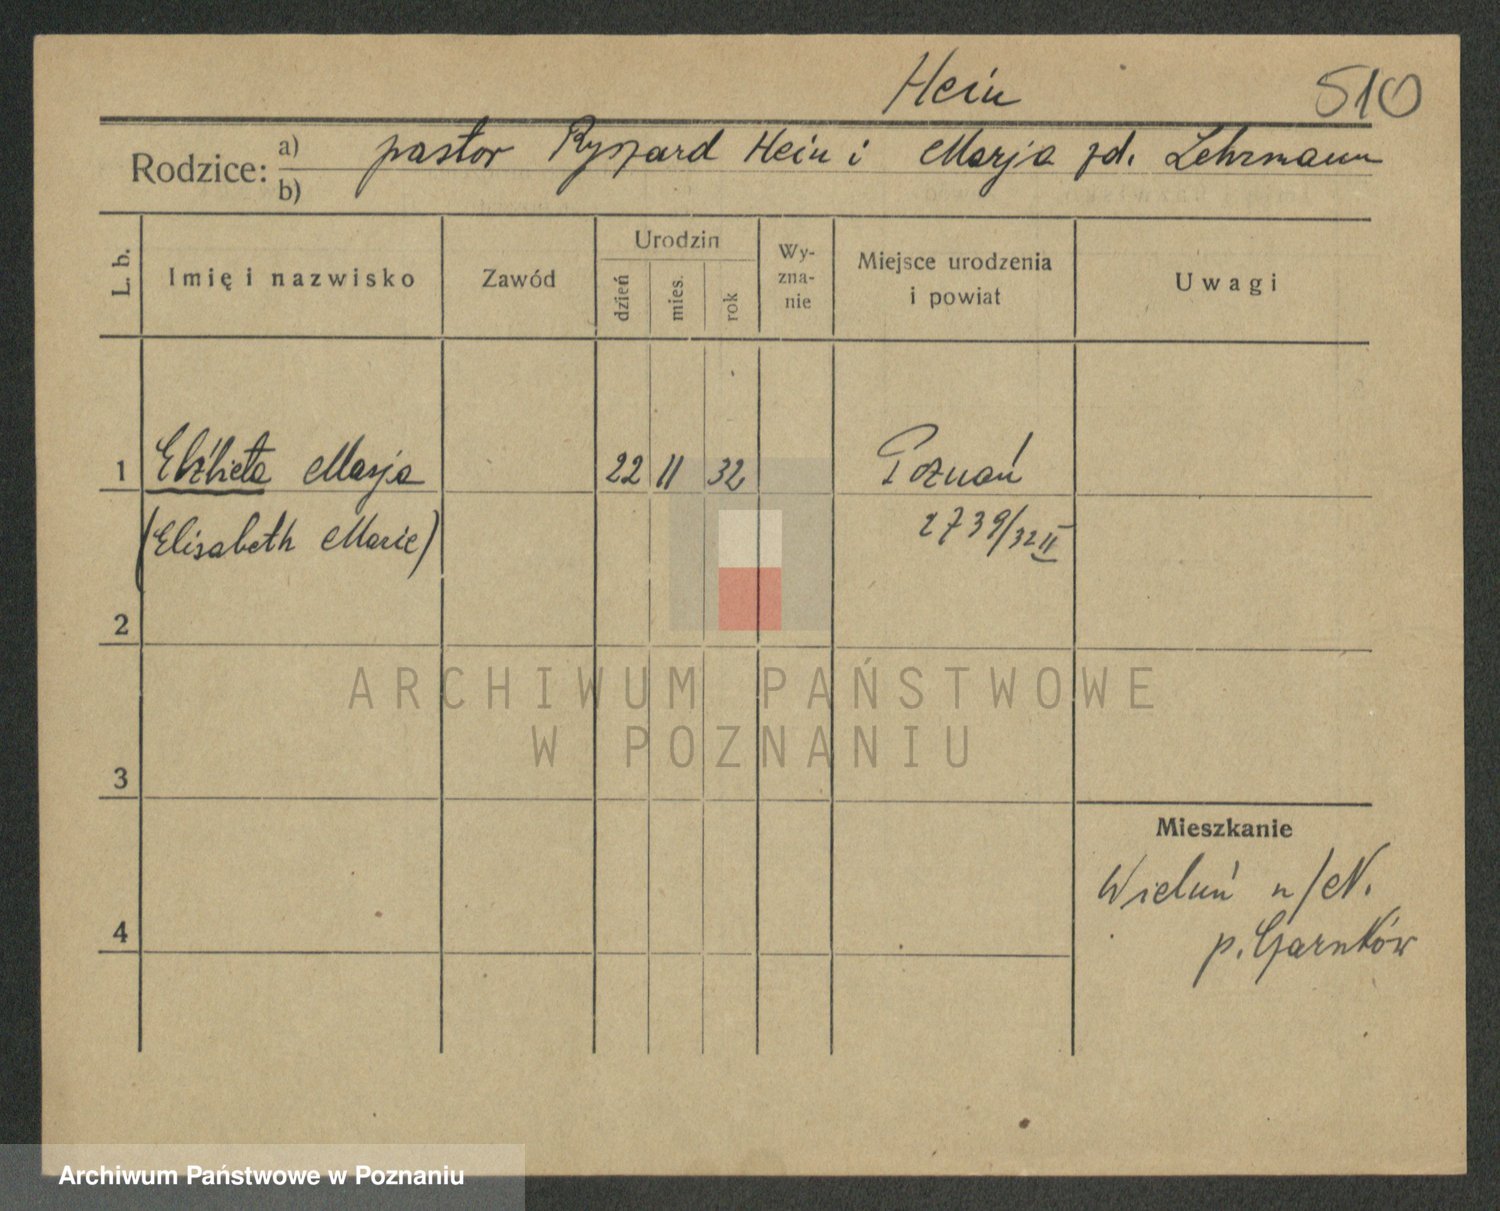 Hein 510
Rodzice: a) pastor Ryszard Hein i Marja zd. Lehrmann
b)
L. b. Imię i nazwisko Zawód Urodzin dzień mies. rok Wy-zna-nie Miejsce urodzenia i powiat Uwagi
1 Elżbieta Marja 22 11 32 Poznań
(Elisabeth Marie) 2739/32 II
2
ARCHIWUM PAŃSTWOWE
W POZNANIU
3
Mieszkanie
Wieluń n/N.
4 p. Czarnków
Archiwum Państwowe w Poznaniu